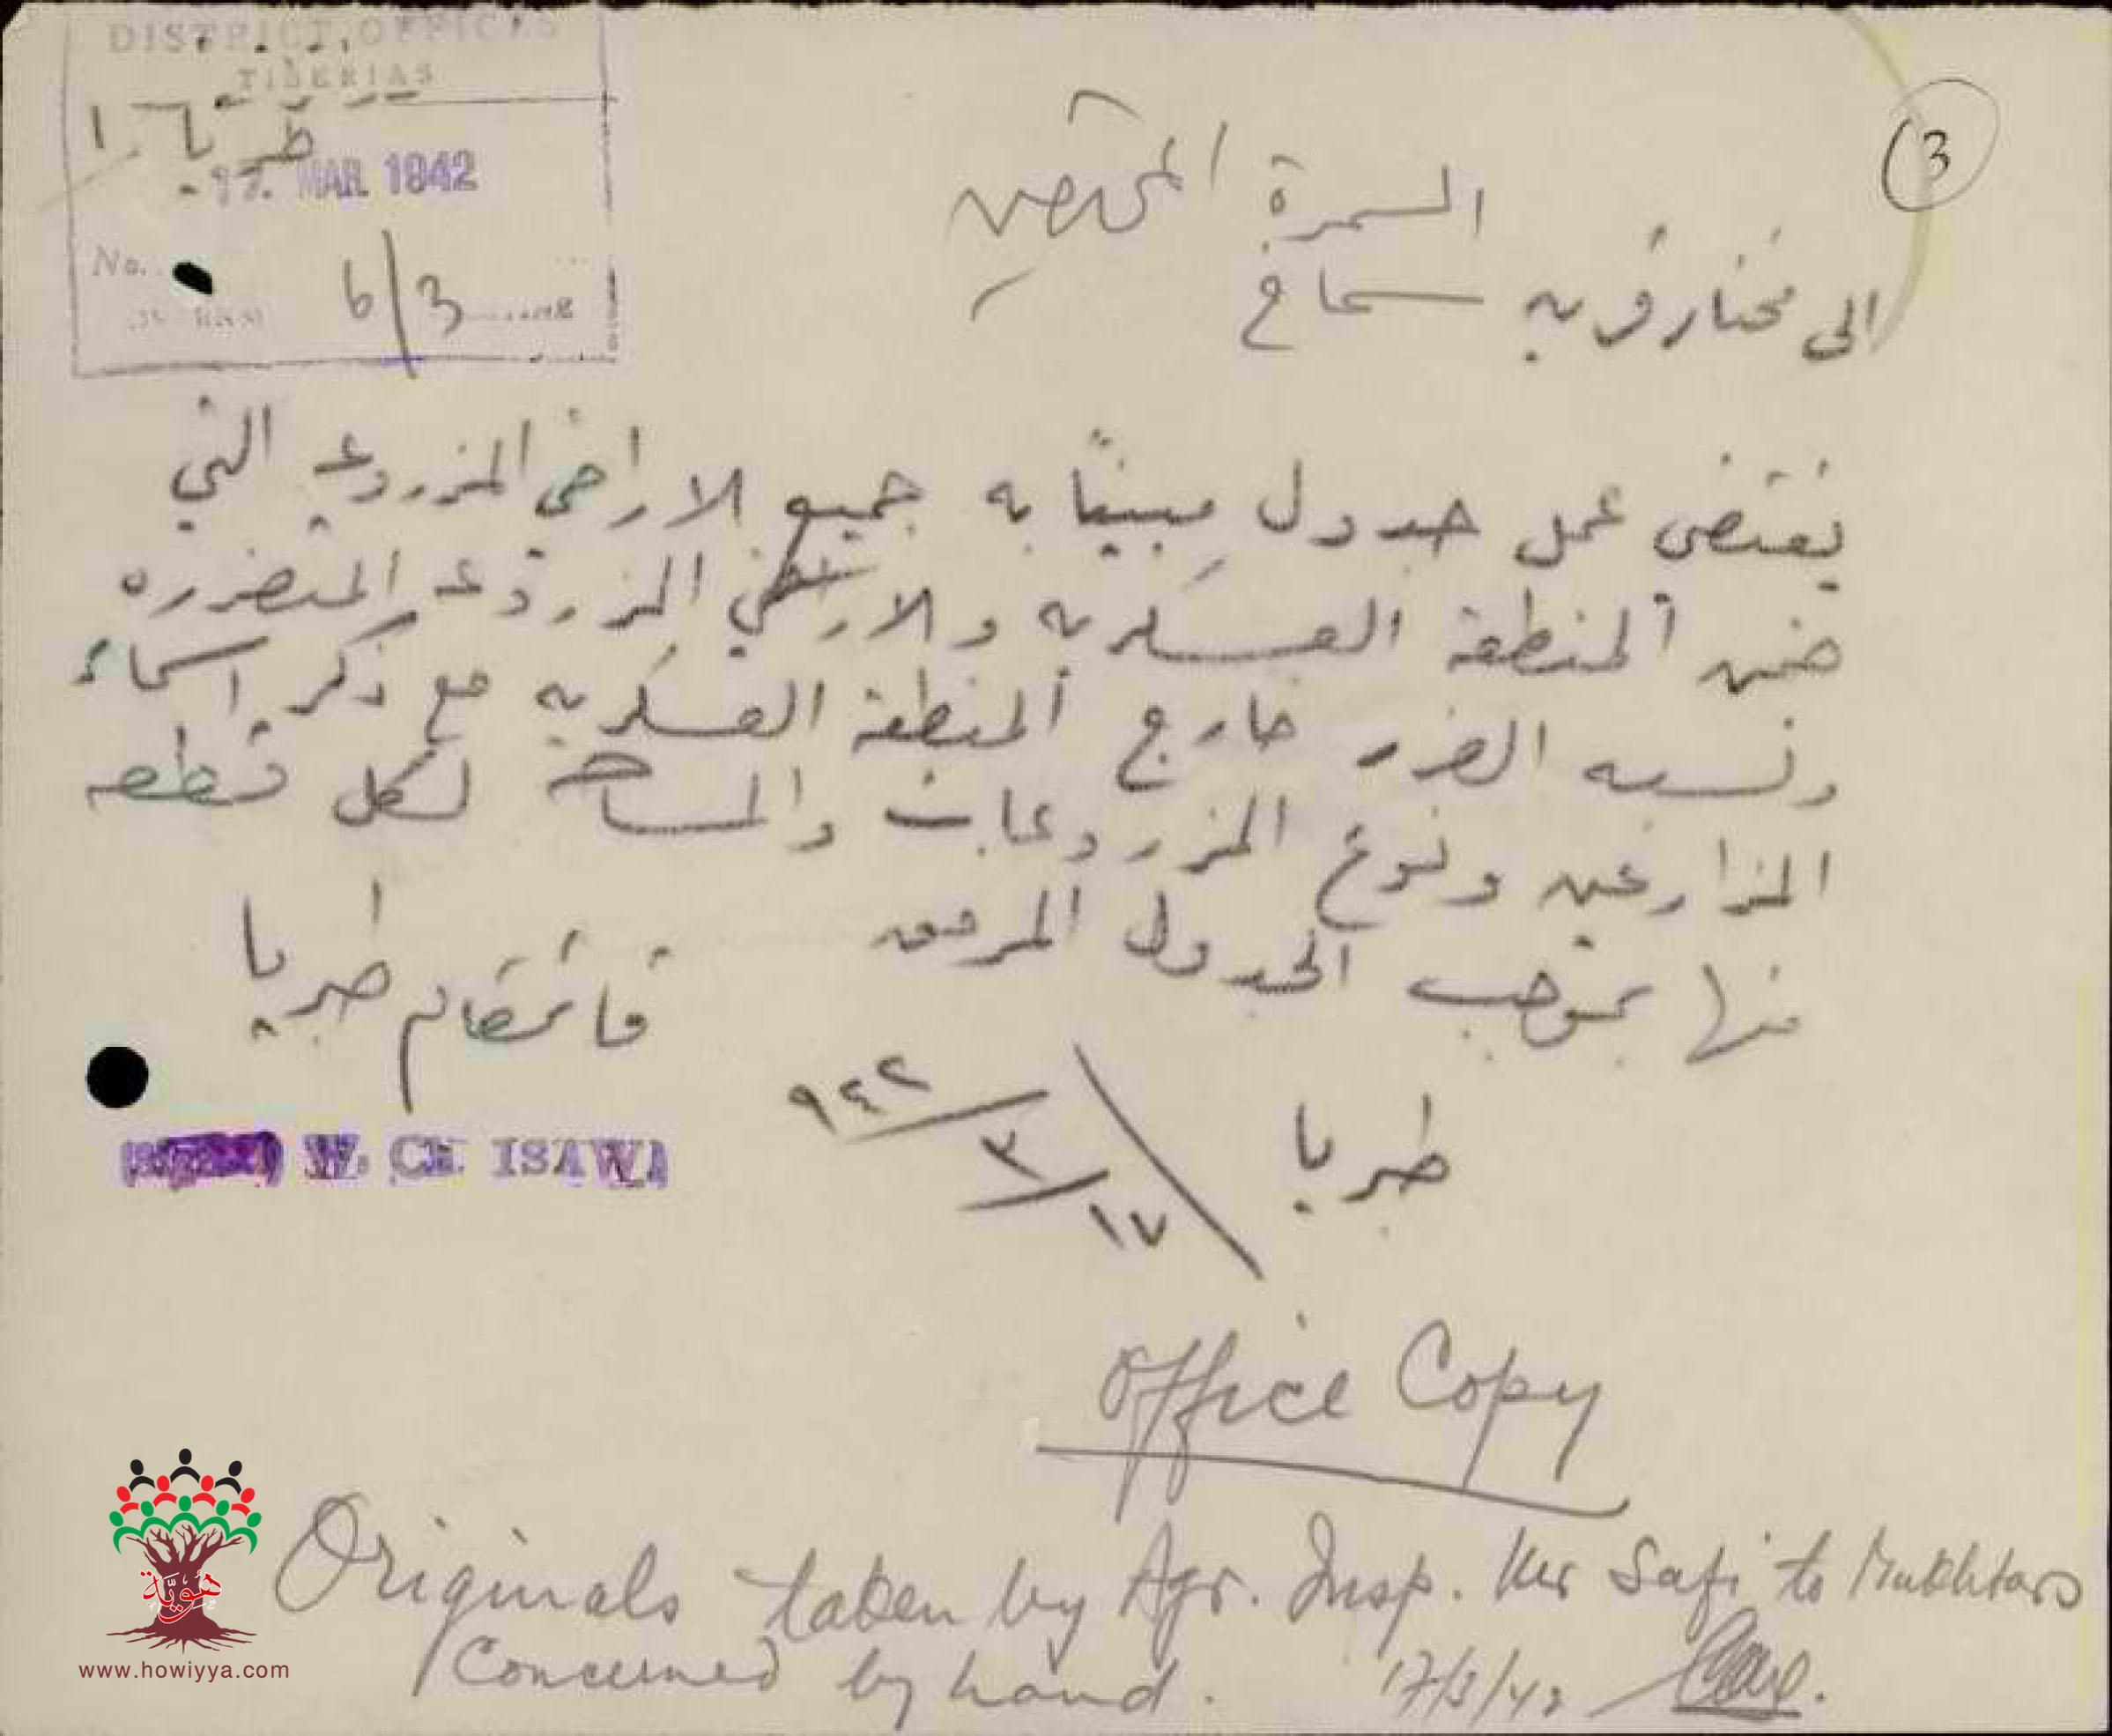 DISTRICT OFFICES
TIBERIAS
طبريا
17. MAR 1942
No.
6/3
3
السمرة
الى مختار قرية سماخ المحترمين
يقتضي عمل جدول مبيناً به جميع الاراضي المزروعه التي
ضمن المنطقة العسكريه والاراضي المزروعه المتضرره
ونسبه الضرر خارج المنطقة العسكريه مع ذكر اسماء
المزارعين ونوع المزروعات والمساحه لكل قطعه
منها بموجب الجدول المرفق
قائمقام طبريا
W. CH. ISAWI
طبريا ١٧/٣/٩٤٢
Office Copy
Originals taken by Agr. Insp. Mr Safi to Mukhtars
Concerned by hand. 17/3/42
هوية
www.howiyya.com